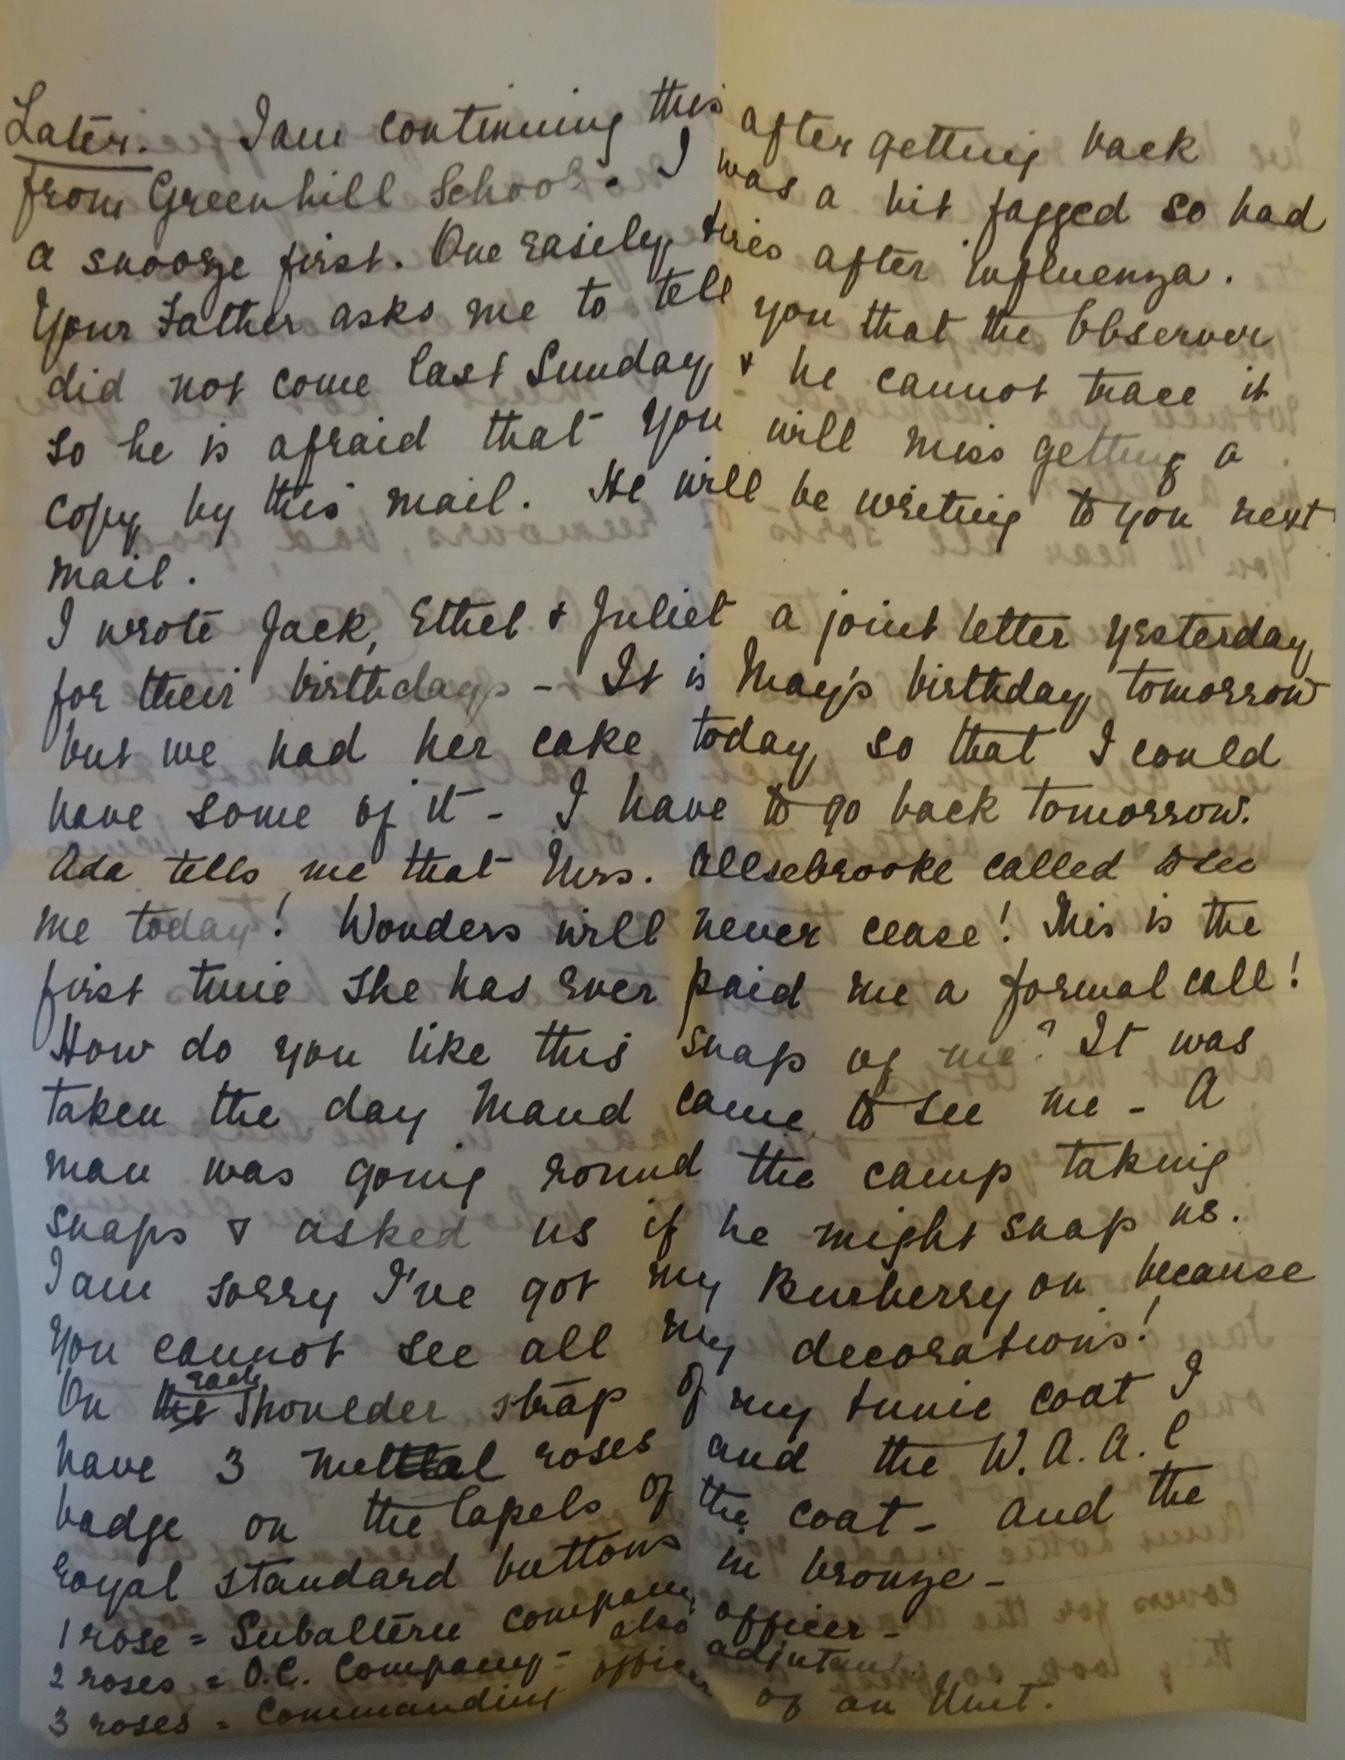 Later. I am continuing this after getting back
from Greenhill School. I was a bit fagged so had
a snooze first. One easily tires after influenza.
Your Father asks me to tell you that the Observer
did not come last Sunday, & he cannot trace it
so he is afraid that you will miss getting a
copy by this mail. He will be writing to you next
mail.
I wrote Jack, Ethel & Juliet a joint letter yesterday
for their birthdays - It is May's birthday tomorrow
but we had her cake today so that I could
have some of it - I have to go back tomorrow.
Ada tells me that Mrs. Allsebrooke called to see
me today! Wonders will never cease! This is the
first time she has ever paid me a formal call!
How do you like this snap of me? It was
taken the day Maud came to see me - A
man was going round the camp taking
snaps & asked us if he might snap us.
I am sorry I've got my Burberry on because
you cannot see all my decorations!
On the each shoulder strap of my tunic coat I
have 3 metal roses and the W.A.A.C
badge on the lapels of the coat - and the
royal standard buttons in bronze -
1 rose = Subaltern company officer -
2 roses = O.C. Company - also adjutant.
3 roses = Commanding officer of an Unit.